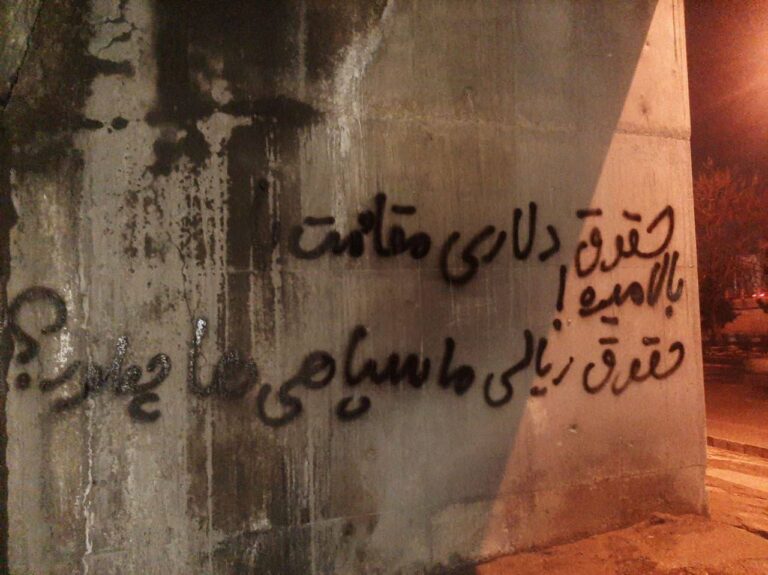 حقوق دلاری مقاومت
بالا میره!
حقوق ریالی ما سپاهی ها چطور؟